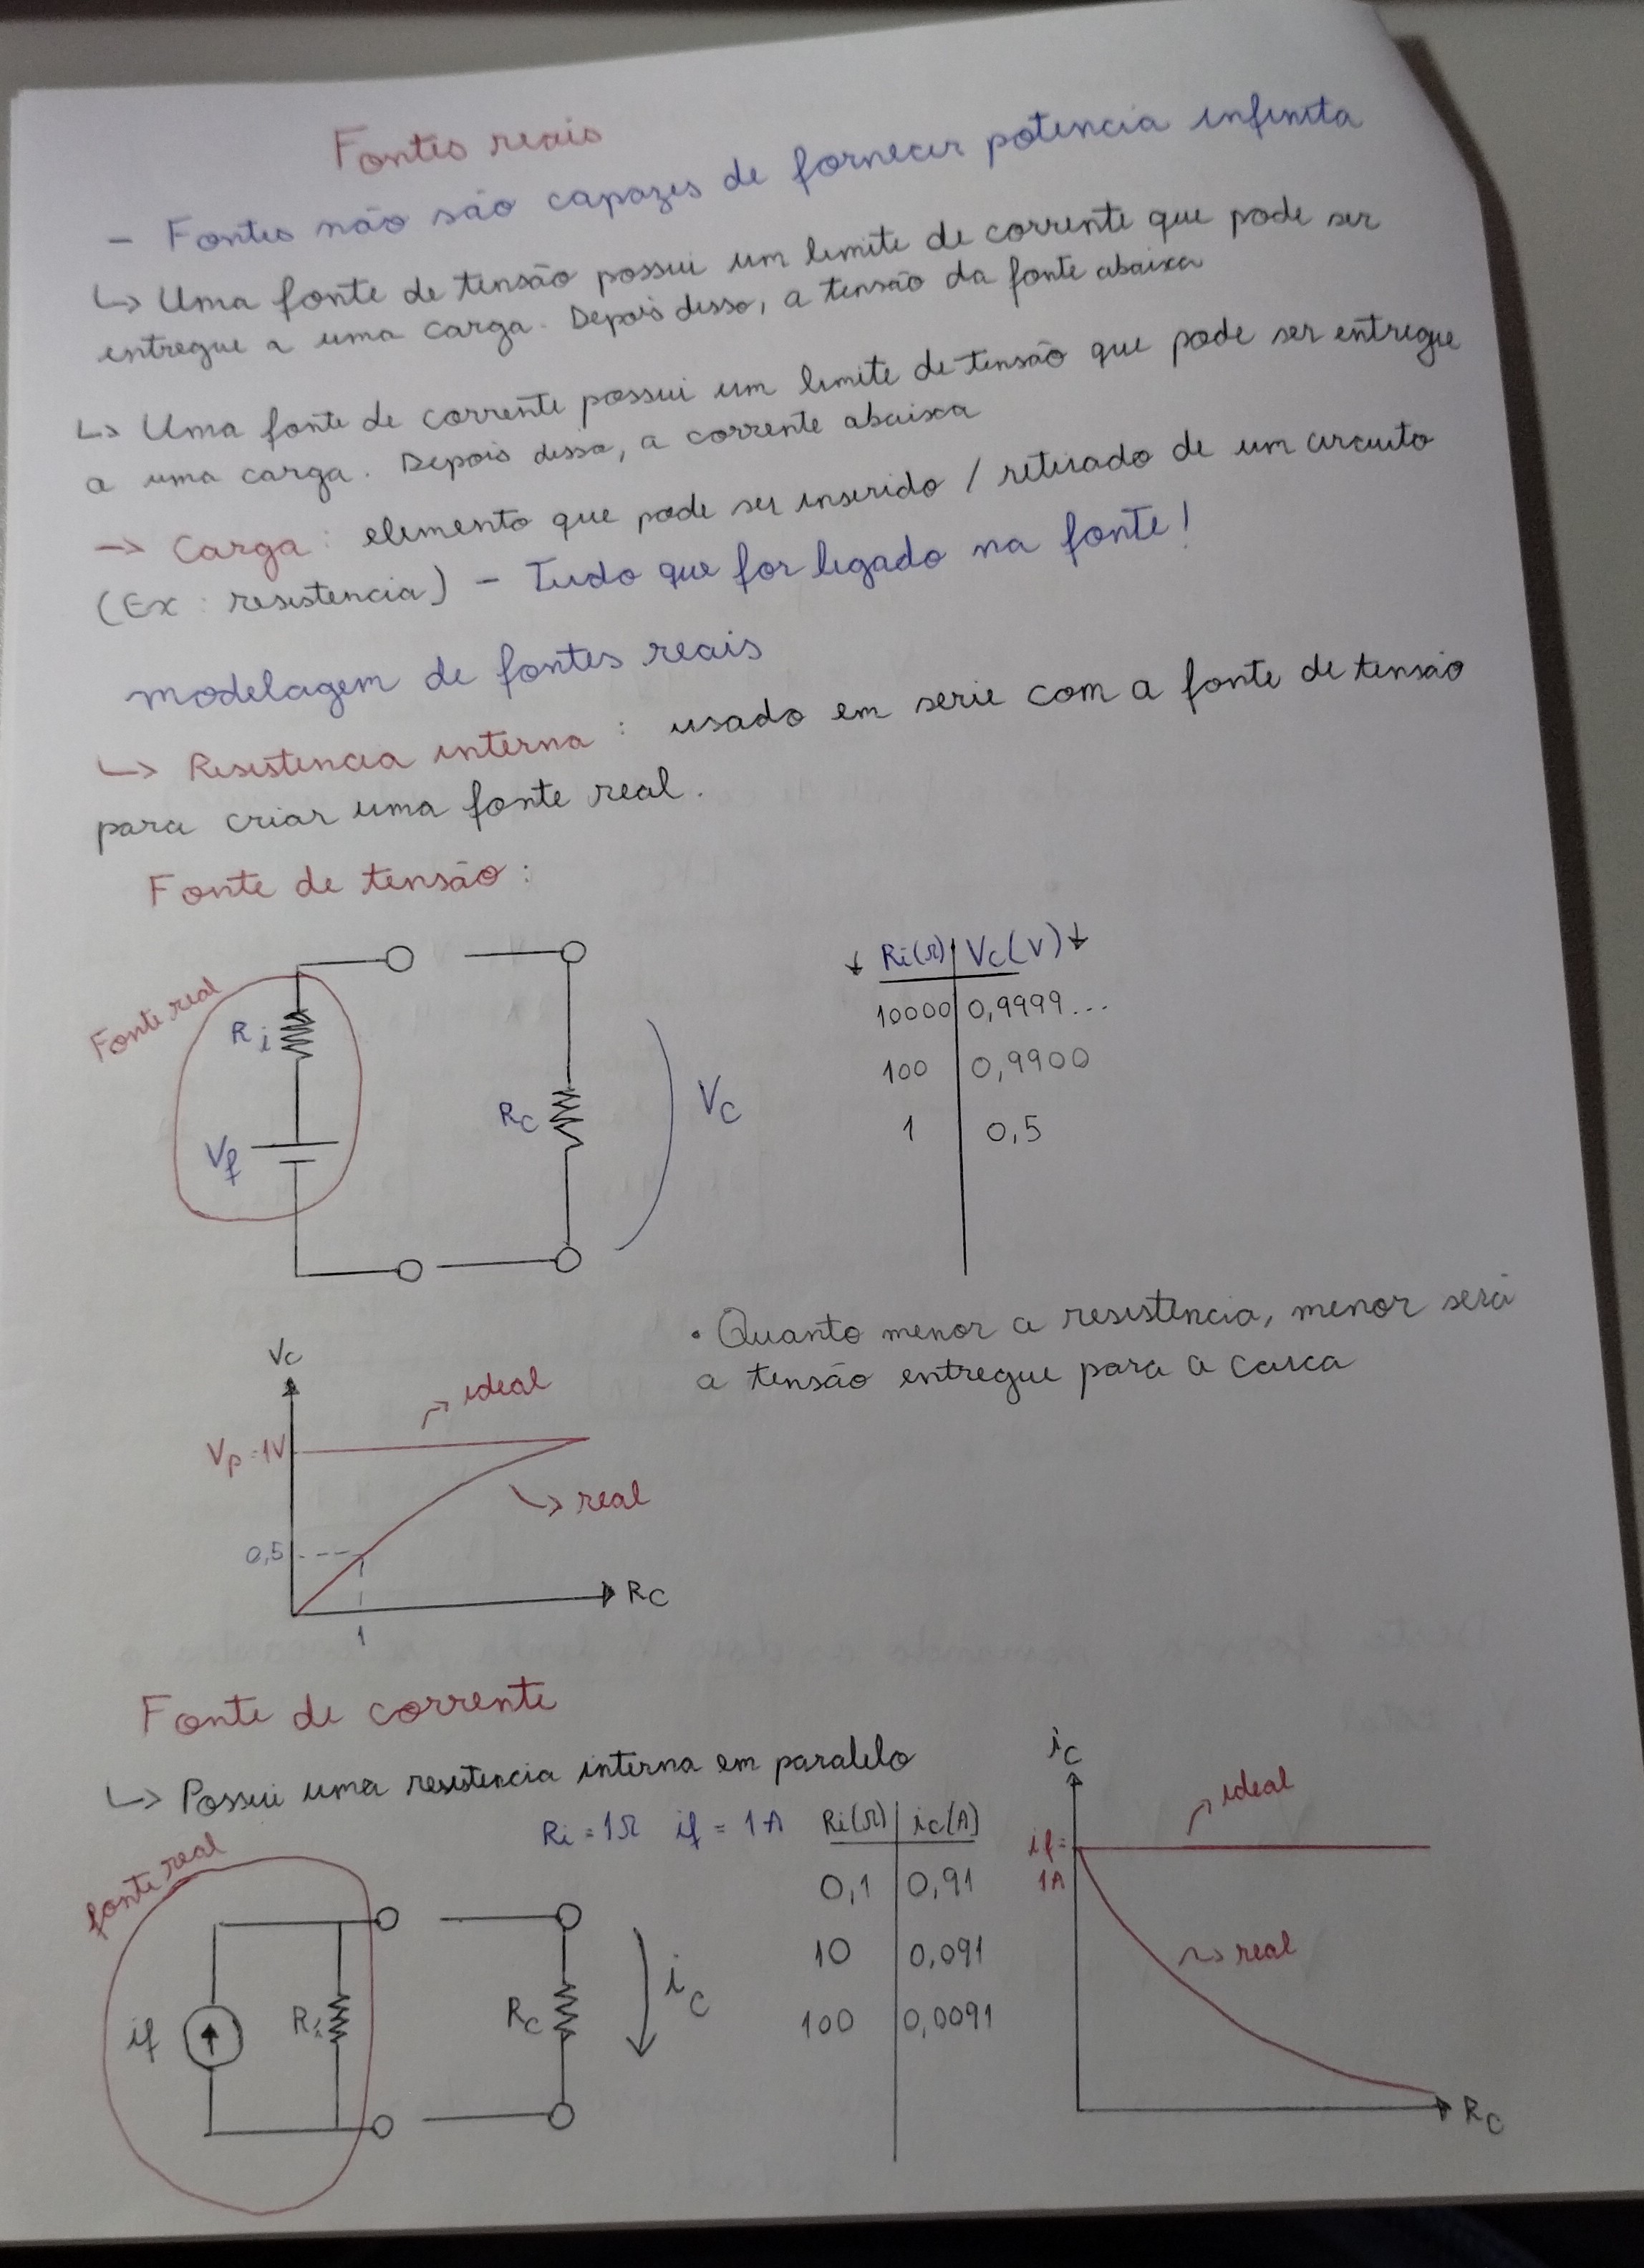 Fontes reais
- Fontes não são capazes de fornecer potencia infinita
↳ Uma fonte de tensão possui um limite de corrente que pode ser
entregue a uma carga. Depois disso, a tensão da fonte abaixa
↳ Uma fonte de corrente possui um limite de tensão que pode ser entregue
a uma carga. Depois disso, a corrente abaixa
→ Carga: elemento que pode ser inserido / retirado de um circuito
(Ex: resistencia) - Tudo que for ligado na fonte!
modelagem de fontes reais
↳ Resistencia interna: usado em serie com a fonte de tensão
para criar uma fonte real.
Fonte de tensão:
Fonte real
Ri
Vf
Rc
Vc
↓ Ri(Ω) | Vc(V) ↓
10000 | 0,9999...
100 | 0,9900
1 | 0,5
• Quanto menor a resistencia, menor será
a tensão entregue para a carca
Vc
ideal
Vp = 1V
real
0,5
Rc
1
Fonte de corrente
↳ Possui uma resistencia interna em paralelo
Ri = 1Ω if = 1A
fonte real
if
Ri
Rc
ic
Ri(Ω) | ic(A)
0,1 | 0,91
10 | 0,091
100 | 0,0091
ic
ideal
if =
1A
real
Rc